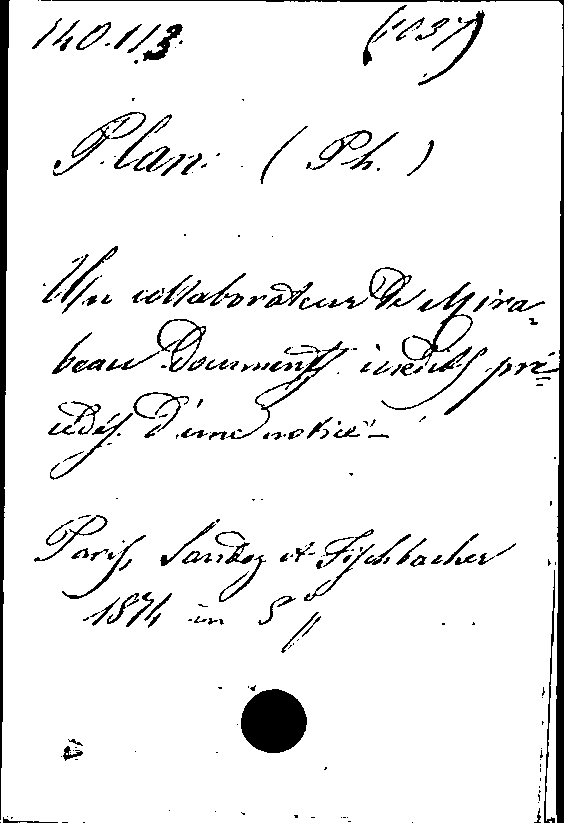 140.113 (1037)
Plan. (Ph.)
Un collaborateur de Mira-
beau Documents inédits pré-
cédés d'une notice -
Paris, Sandoz et Fischbacher
1874 in 8°